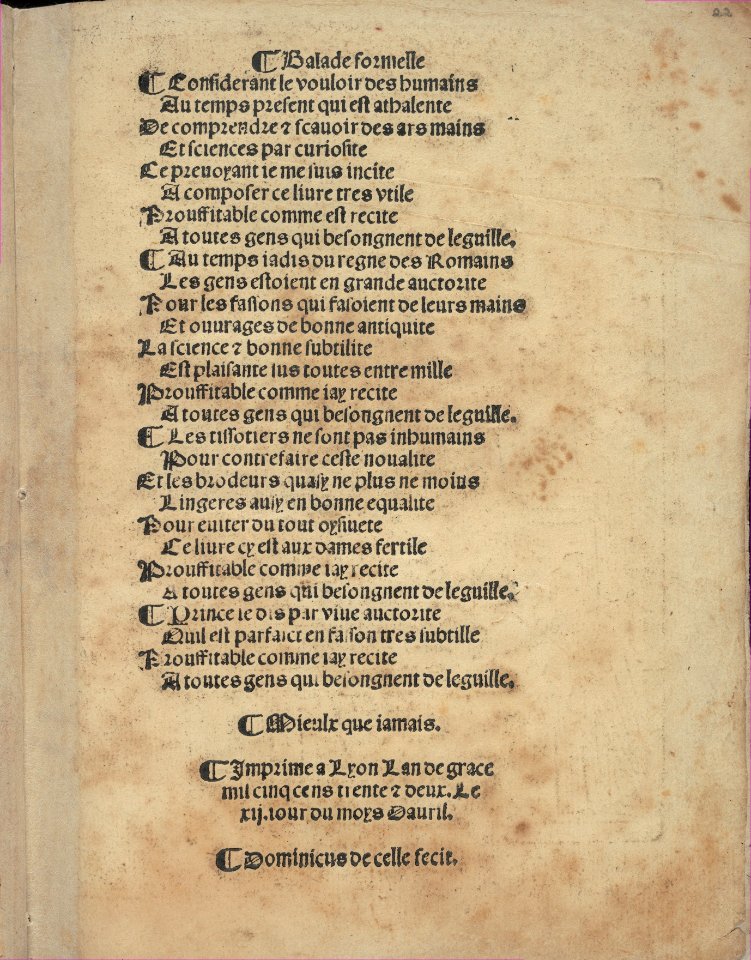 22
¶ Balade formelle
¶ Considerant le vouloir des humains
Au temps present qui est athalente
De comprendre ⁊ scauoir des ars mains
Et sciences par curiosite
Ce preuoyant ie me suis incite
A composer ce liure tres vtile
Prouffitable comme est recite
A toutes gens qui besongnent de leguille.
¶ Au temps iadis du regne des Romains
Les gens estoient en grande auctorite
Pour les fassons qui fasoient de leurs mains
Et ouurages de bonne antiquite
La science ⁊ bonne subtilite
Est plaisante sus toutes entre mille
Prouffitable comme iay recite
A toutes gens qui besongnent de leguille.
¶ Les tissotiers ne sont pas inhumains
Pour contrefaire ceste noualite
Et les brodeurs quasy ne plus ne moius
Lingeres ausy en bonne equalite
Pour euiter du tout oysiuete
Ce liure cy est aux dames fertile
Prouffitable comme iay recite
A toutes gens qui besongnent de leguille.
¶ Prince ie dis par viue auctorite
Quil est parfaict en fasson tres subtille
Prouffitable comme iay recite
A toutes gens qui besongnent de leguille.
¶ Mieulx que iamais.
¶ Imprime a Lyon Lan de grace
mil cinq cens trente ⁊ deux. Le
xij. iour du moys Dauril.
¶ Dominicus de celle fecit.